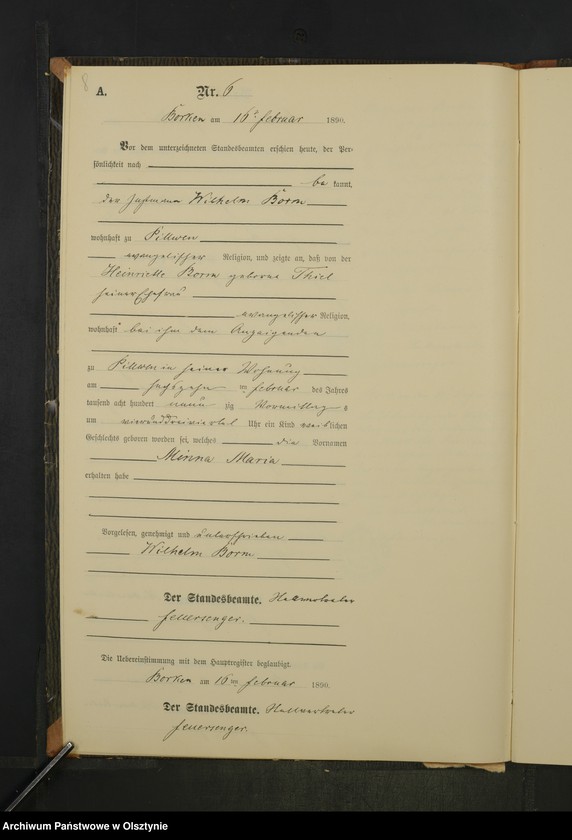 8
A. Nr. 6
Borken am 16ten Februar 1890.
Vor dem unterzeichneten Standesbeamten erschien heute, der Per-
sönlichkeit nach
be kannt,
der Instmann Wilhelm Borm
wohnhaft zu Pillwen
evangelischer Religion, und zeigte an, daß von der
Heinriette Borm geborne Thiel
seiner Ehefrau
evangelischer Religion,
wohnhaft bei ihm dem Anzeigenden
zu Pillwen in seiner Wohnung
am sechszehn ten Februar des Jahres
tausend acht hundert neun zig Vormittag s
um vierunddreiviertel Uhr ein Kind weiblichen
Geschlechts geboren worden sei, welches die Vornamen
Minna Maria
erhalten habe
Vorgelesen, genehmigt und unterschrieben
Wilhelm Borm
Der Standesbeamte.
Feuersenger.
Die Uebereinstimmung mit dem Hauptregister beglaubigt.
Borken am 16ten Februar 1890.
Der Standesbeamte.
Feuersenger.
Archiwum Państwowe w Olsztynie